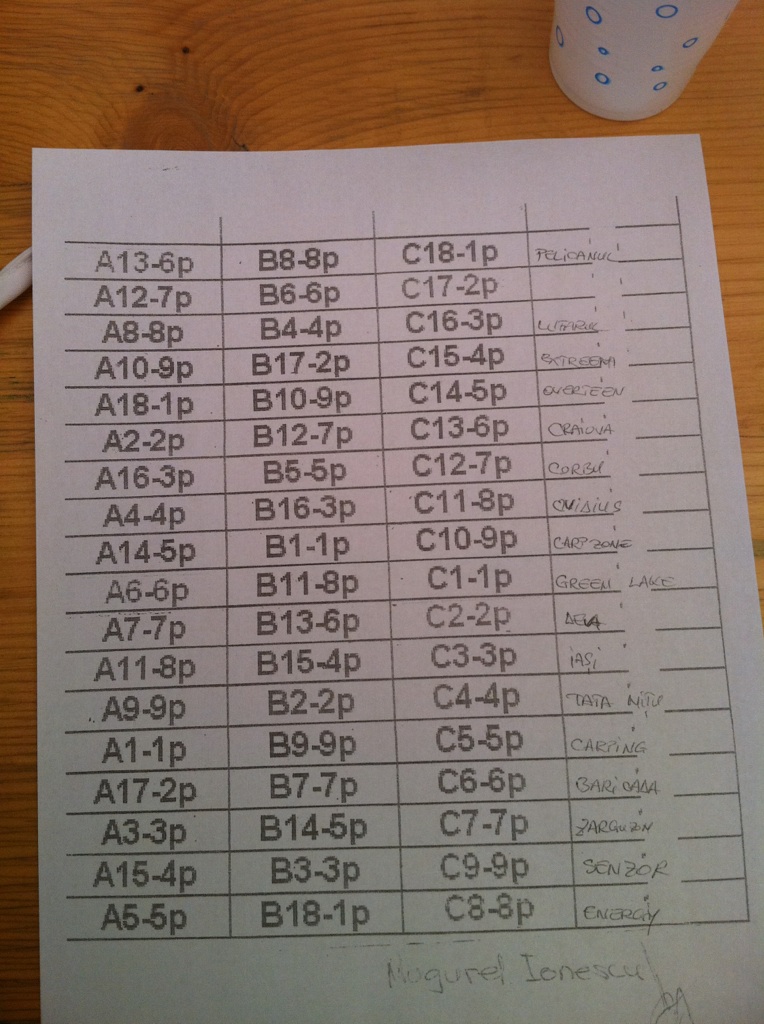 A13-6p B8-8p C18-1p PELICANUL
A12-7p B6-6p C17-2p
A8-8p B4-4p C16-3p
A10-9p B17-2p C15-4p EXTREEM
A18-1p B10-9p C14-5p
A2-2p B12-7p C13-6p CRAIOVA
A16-3p B5-5p C12-7p CORBU
A4-4p B16-3p C11-8p
A14-5p B1-1p C10-9p CARP ZONE
A6-6p B11-8p C1-1p GREEN LAKE
A7-7p B13-6p C2-2p DEVA
A11-8p B15-4p C3-3p iAȘi
A9-9p B2-2p C4-4p TATA NIȚU
A1-1p B9-9p C5-5p CARPING
A17-2p B7-7p C6-6p BARiCADA
A3-3p B14-5p C7-7p
A15-4p B3-3p C9-9p SENZOR
A5-5p B18-1p C8-8p ENERGY
Mugurel Ionescu